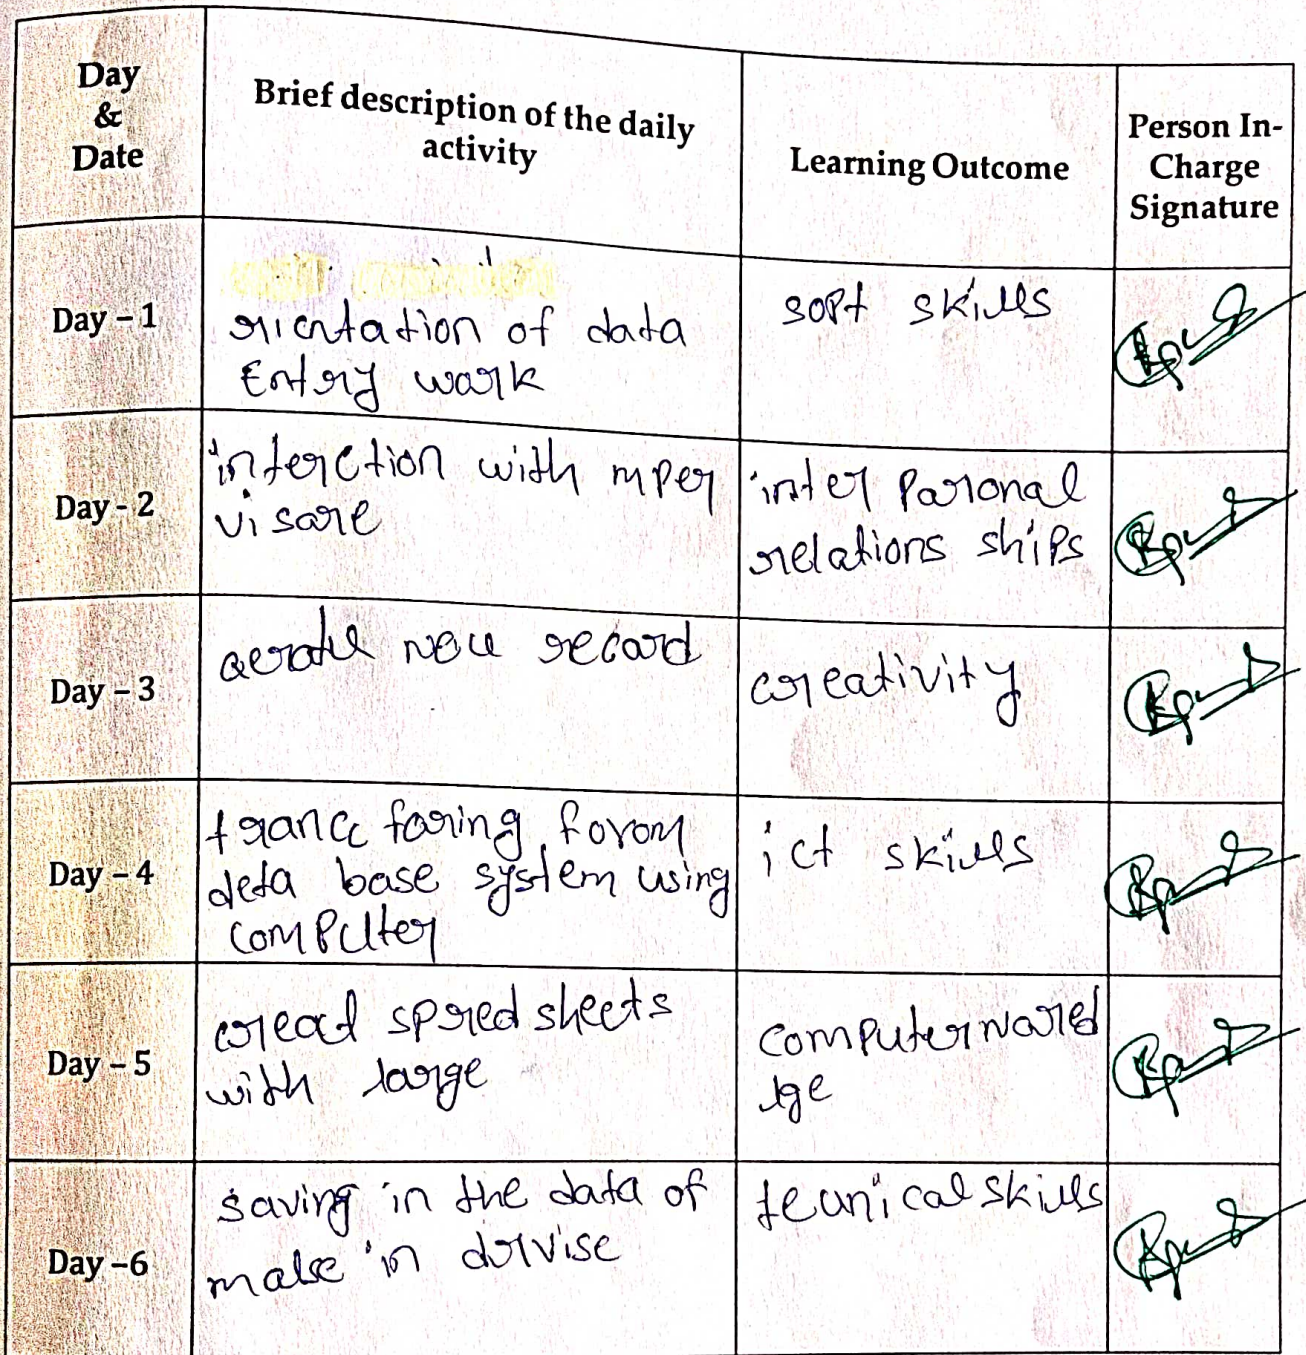 Day
&
Date
Brief description of the daily
activity
Learning Outcome
Person In-
Charge
Signature
Day – 1
rientation of data
Entry work
sopt skills
Day - 2
interction with mper
visare
inter Paronal
relations ships
Day – 3
new record
creativity
Day – 4
faring forom
deta base system using
computer
ict skills
Day – 5
creat spred sheets
with large
computer nared
lge
Day –6
saving in the data of
make in dirvise
teunical skills